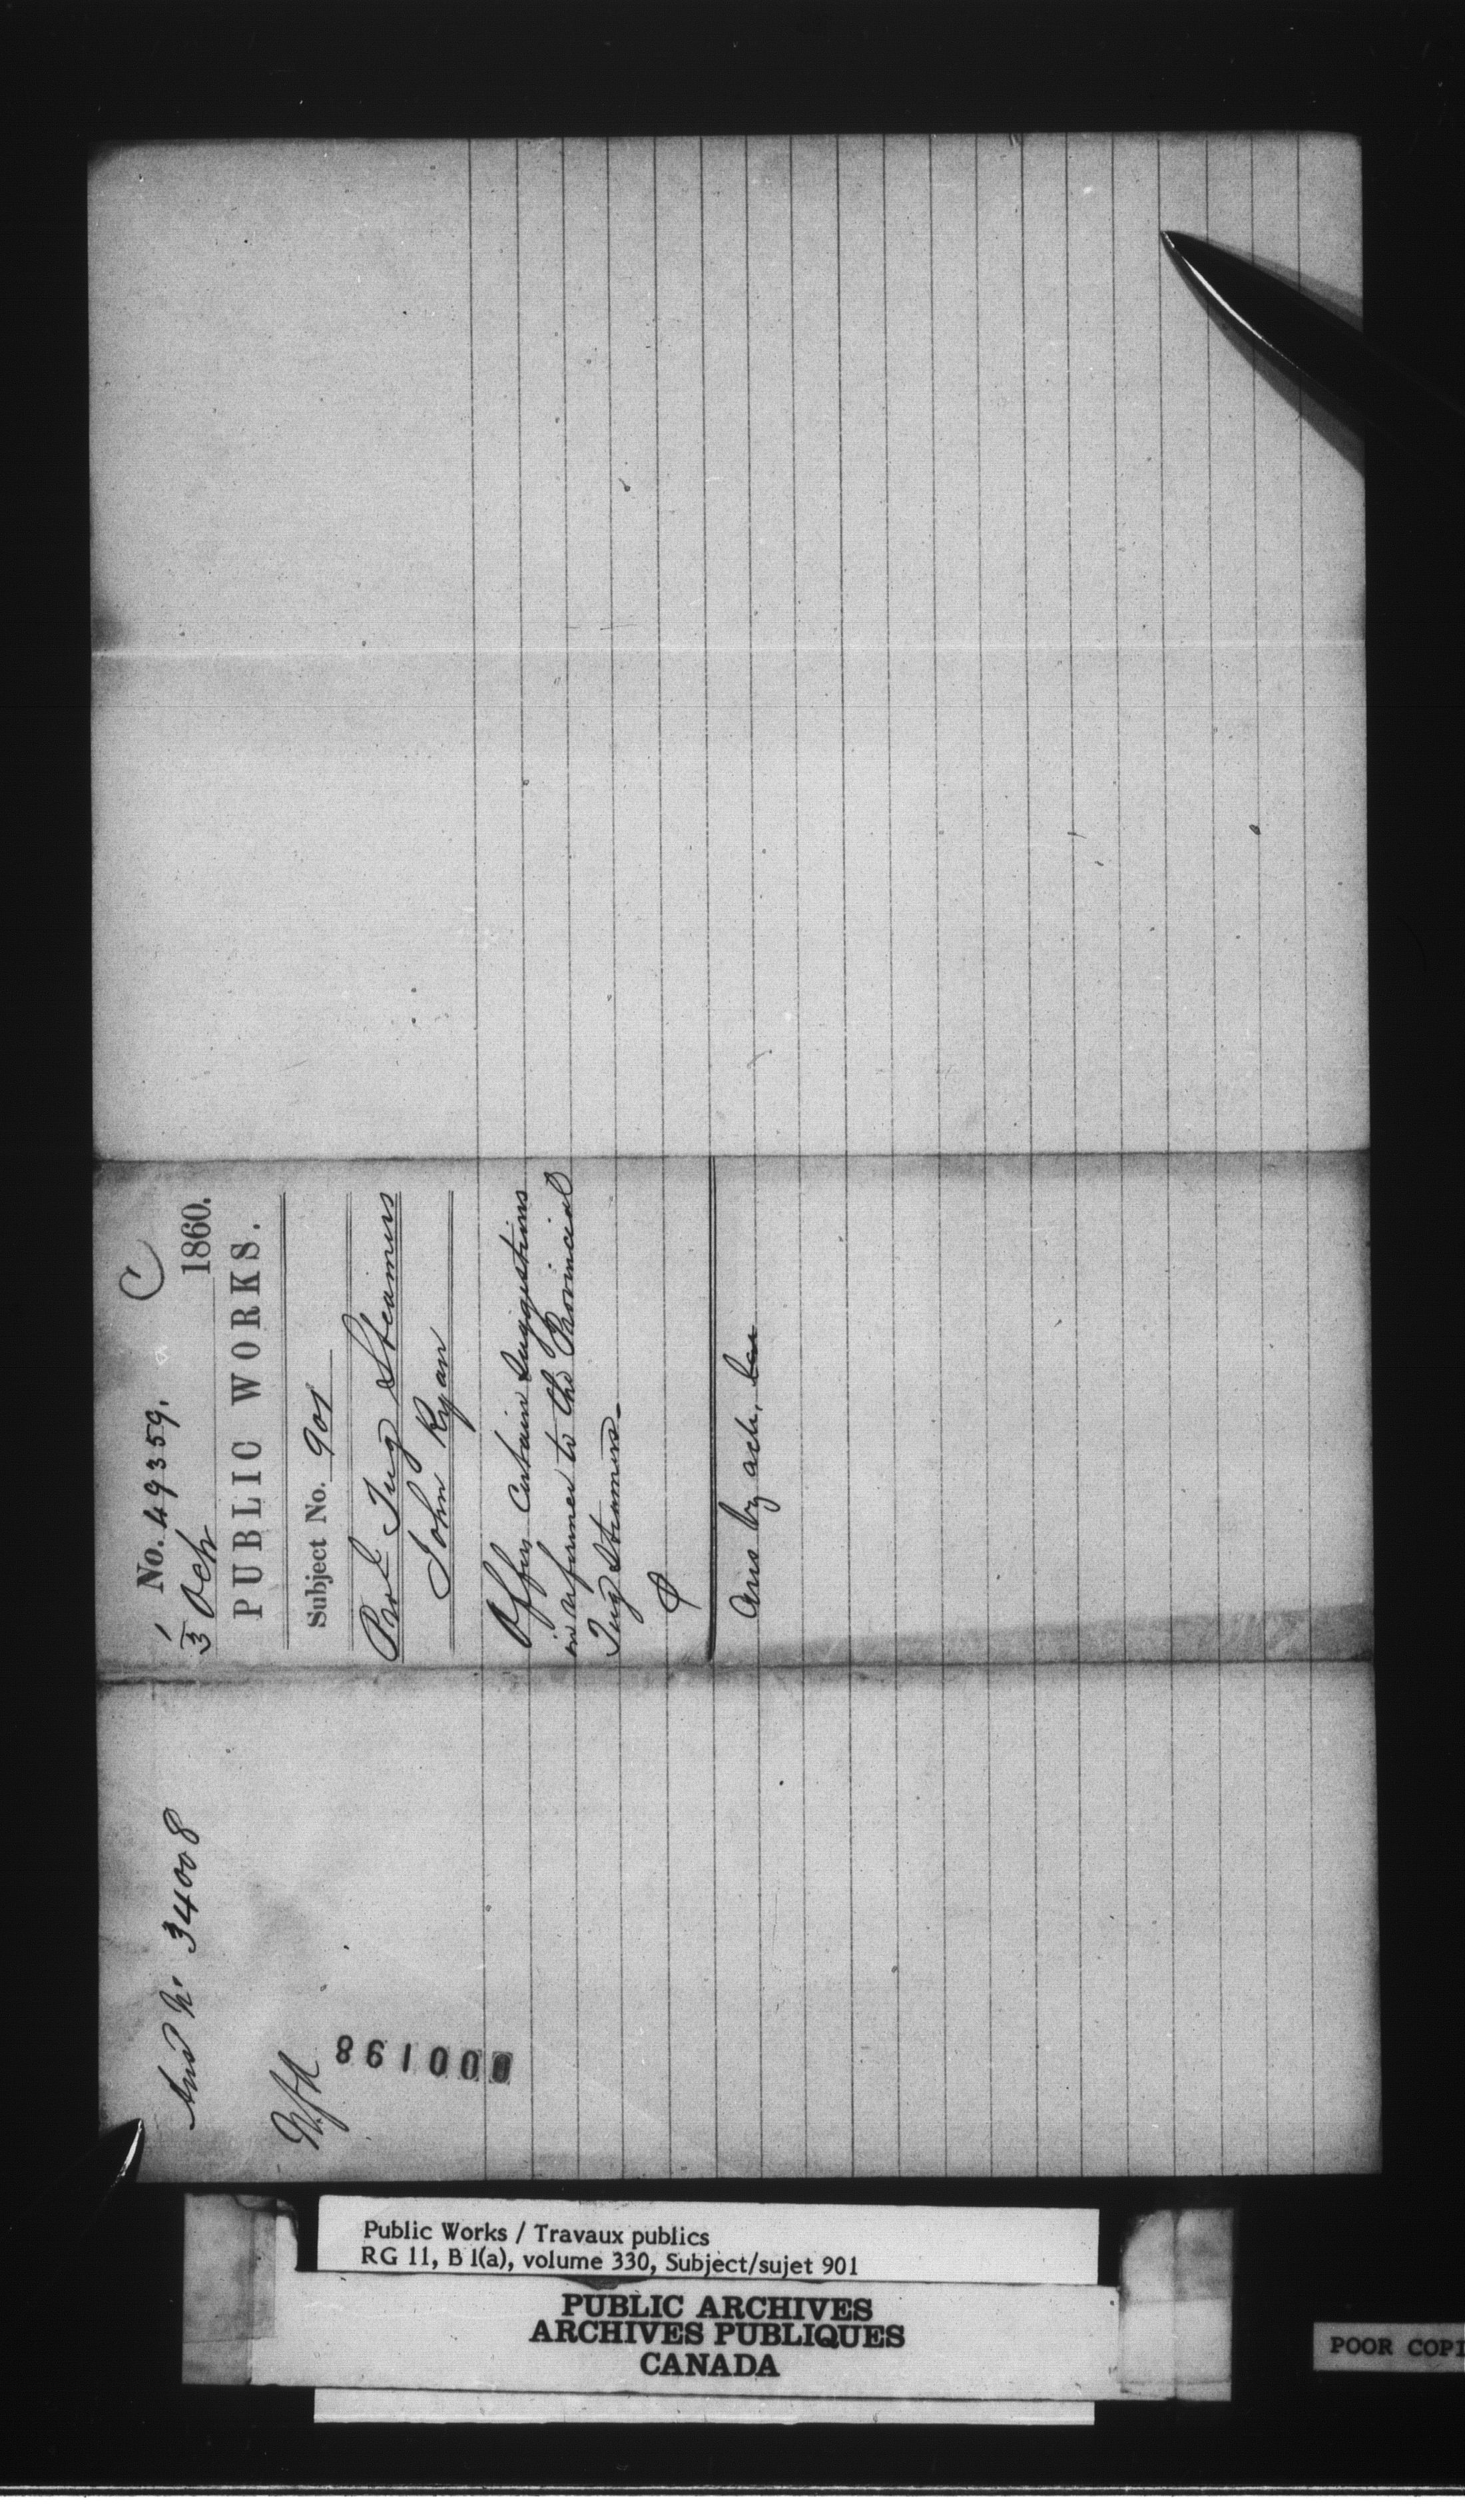 C
No. 49359.
1/3 Oct 1860.
PUBLIC WORKS.
Subject No. 901
Prol Tug Steamers
John Ryan
Offers Certain Suggestions
in reference to the Provincial
Tug Steamers.
Ans by ack.
Ansd No 34008
000198
Public Works / Travaux publics
RG 11, B 1(a), volume 330, Subject/sujet 901
PUBLIC ARCHIVES
ARCHIVES PUBLIQUES
CANADA
POOR COPI